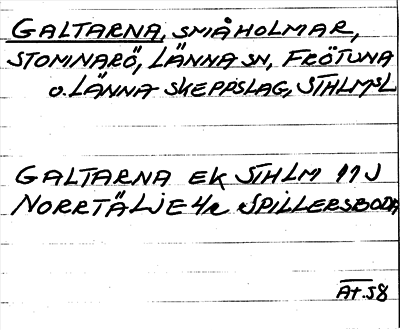 GALTARNA, SMÅHOLMAR,
STOMNARÖ, LÄNNA SN, FRÖTUNA
O. LÄNNA SKEPPSLAG, STHLMSL
GALTARNA EK STHLM 11J
NORRTÄLJE 4a SPILLERSBODA
AT.58